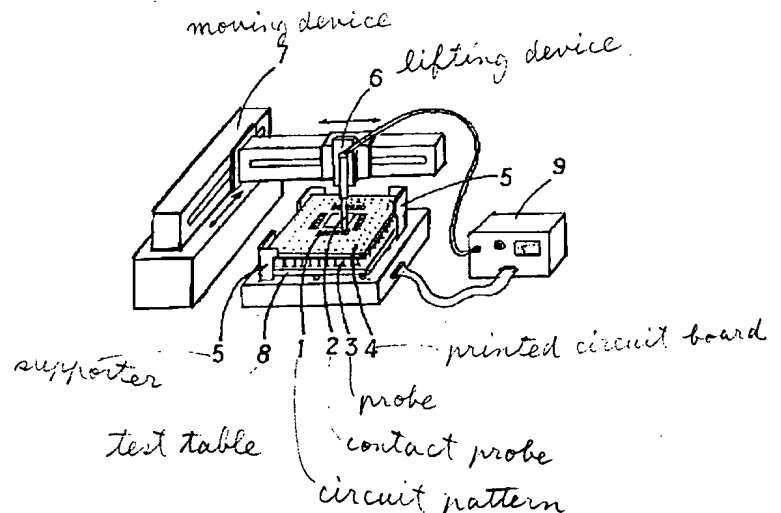 moving device
7
6 lifting device
5
9
5 8 1 2 3 4 printed circuit board
supporter
probe
test table
contact probe
circuit pattern